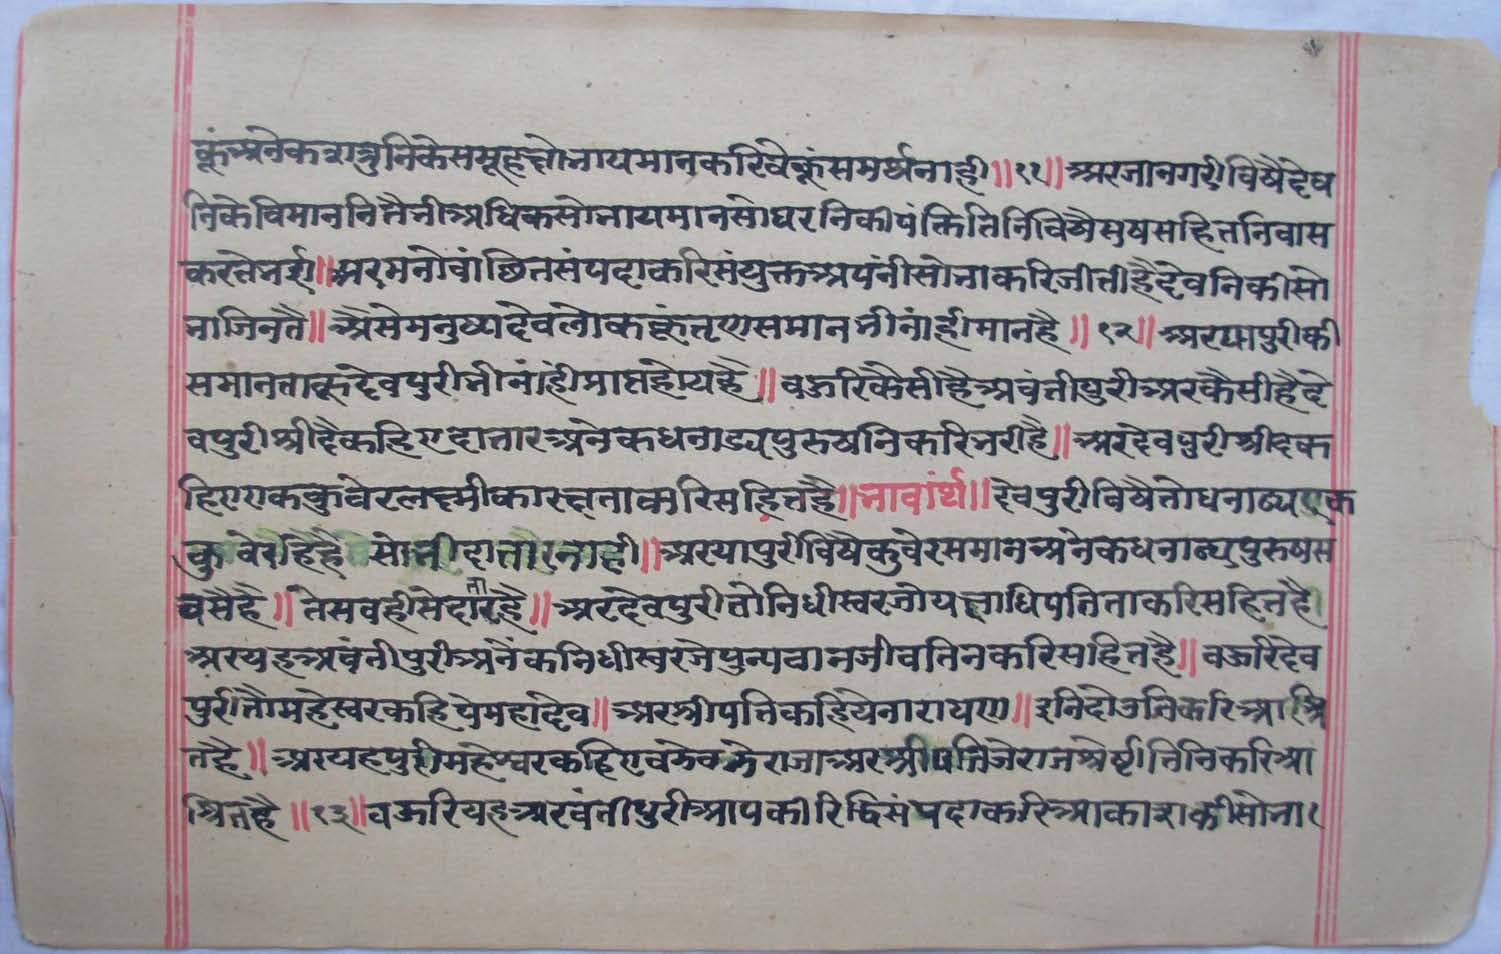 कूंअनेकशत्रुनिकेसमूहक्षोभायमानकरिवेकूंसमर्थनाही॥११॥अरजानगरीविषैदेव
निकेविमाननितैभीअधिकसोभायमानसोघरनिकीपंक्तितिनिविषैसुषसहितनिवास
करतेभए॥अरमनोवांछितसंपदाकरिसंयुक्तअपंनीसोभाकरिजीतीहैदेवनिकीसो
भाजिनतै॥अैसेमनुष्यदेवलोककूंतृणसमानभीनांहीमानहै॥१२॥अरयापुरीकी
समानताकूदेवपुरीभीनांहीप्राप्तहोयहै॥वऊरिकैसीहैअवंतीपुरीअरकैसीहैदे
वपुरीश्रीदैकहिएदातारअनेकधनाढ्यपुरुषनिकरिभरीहै॥अरदेवपुरीश्रीदक
हिएएककुवेरलक्ष्मीकारक्षताकरिसहितहै॥भावार्थ॥देवपुरीविषैतोधनाढ्यएक
कुवेरहिहै सोभीदातारनाही॥अरयापुरीविषैकुवेरसमानअनेकधनाढ्यपुरुषस
वसैहै॥तेसवहीसेदातारहै॥अरदेवपुरीतोनिधीस्वरजोयक्षाधिपतिताकरिसहितहै
अरयहअवंतीपुरीअनेंकनिधीस्वरजेपुन्यवानजीवतिनकरिसहितहै॥वऊरिदेव
पुरीतौमहेस्वरकहियेमहादेव॥अरश्रीपतिकहियेनारायण॥इनिदोउनिकरिआश्रि
तहै॥अरयहपुरीमहेश्वरकहिएवडेवडेराजाअरश्रीपतिजेराजश्रेष्टीतिनिकरिआ
श्रितहै॥१३॥वऊरियहअरवंतीपुरीआपकीरिद्धिसंपदाकरिआकाशकीसोभा